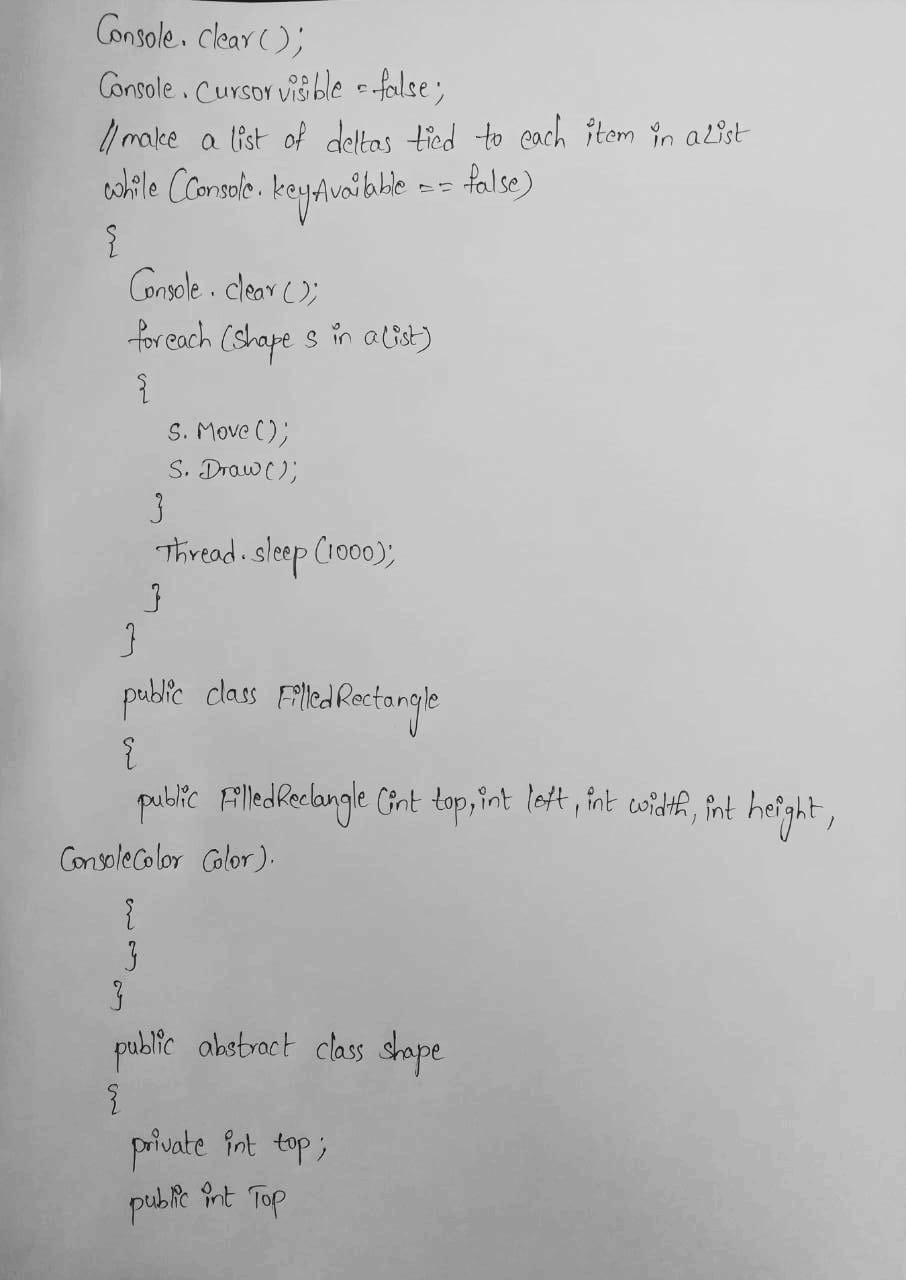 Console. clear();
Console. cursorvisible = false;
//make a list of deltas tied to each item in aList
while (Console. keyAvailable == false)
{
Console. clear();
foreach (shape s in aList)
{
S. Move();
S. Draw();
}
Thread. sleep (1000);
}
}
public class FilledRectangle
{
public FilledReclangle (int top, int left, int width, int height,
ConsoleColor Color).
{
}
}
public abstract class shape
{
private int top;
public int Top